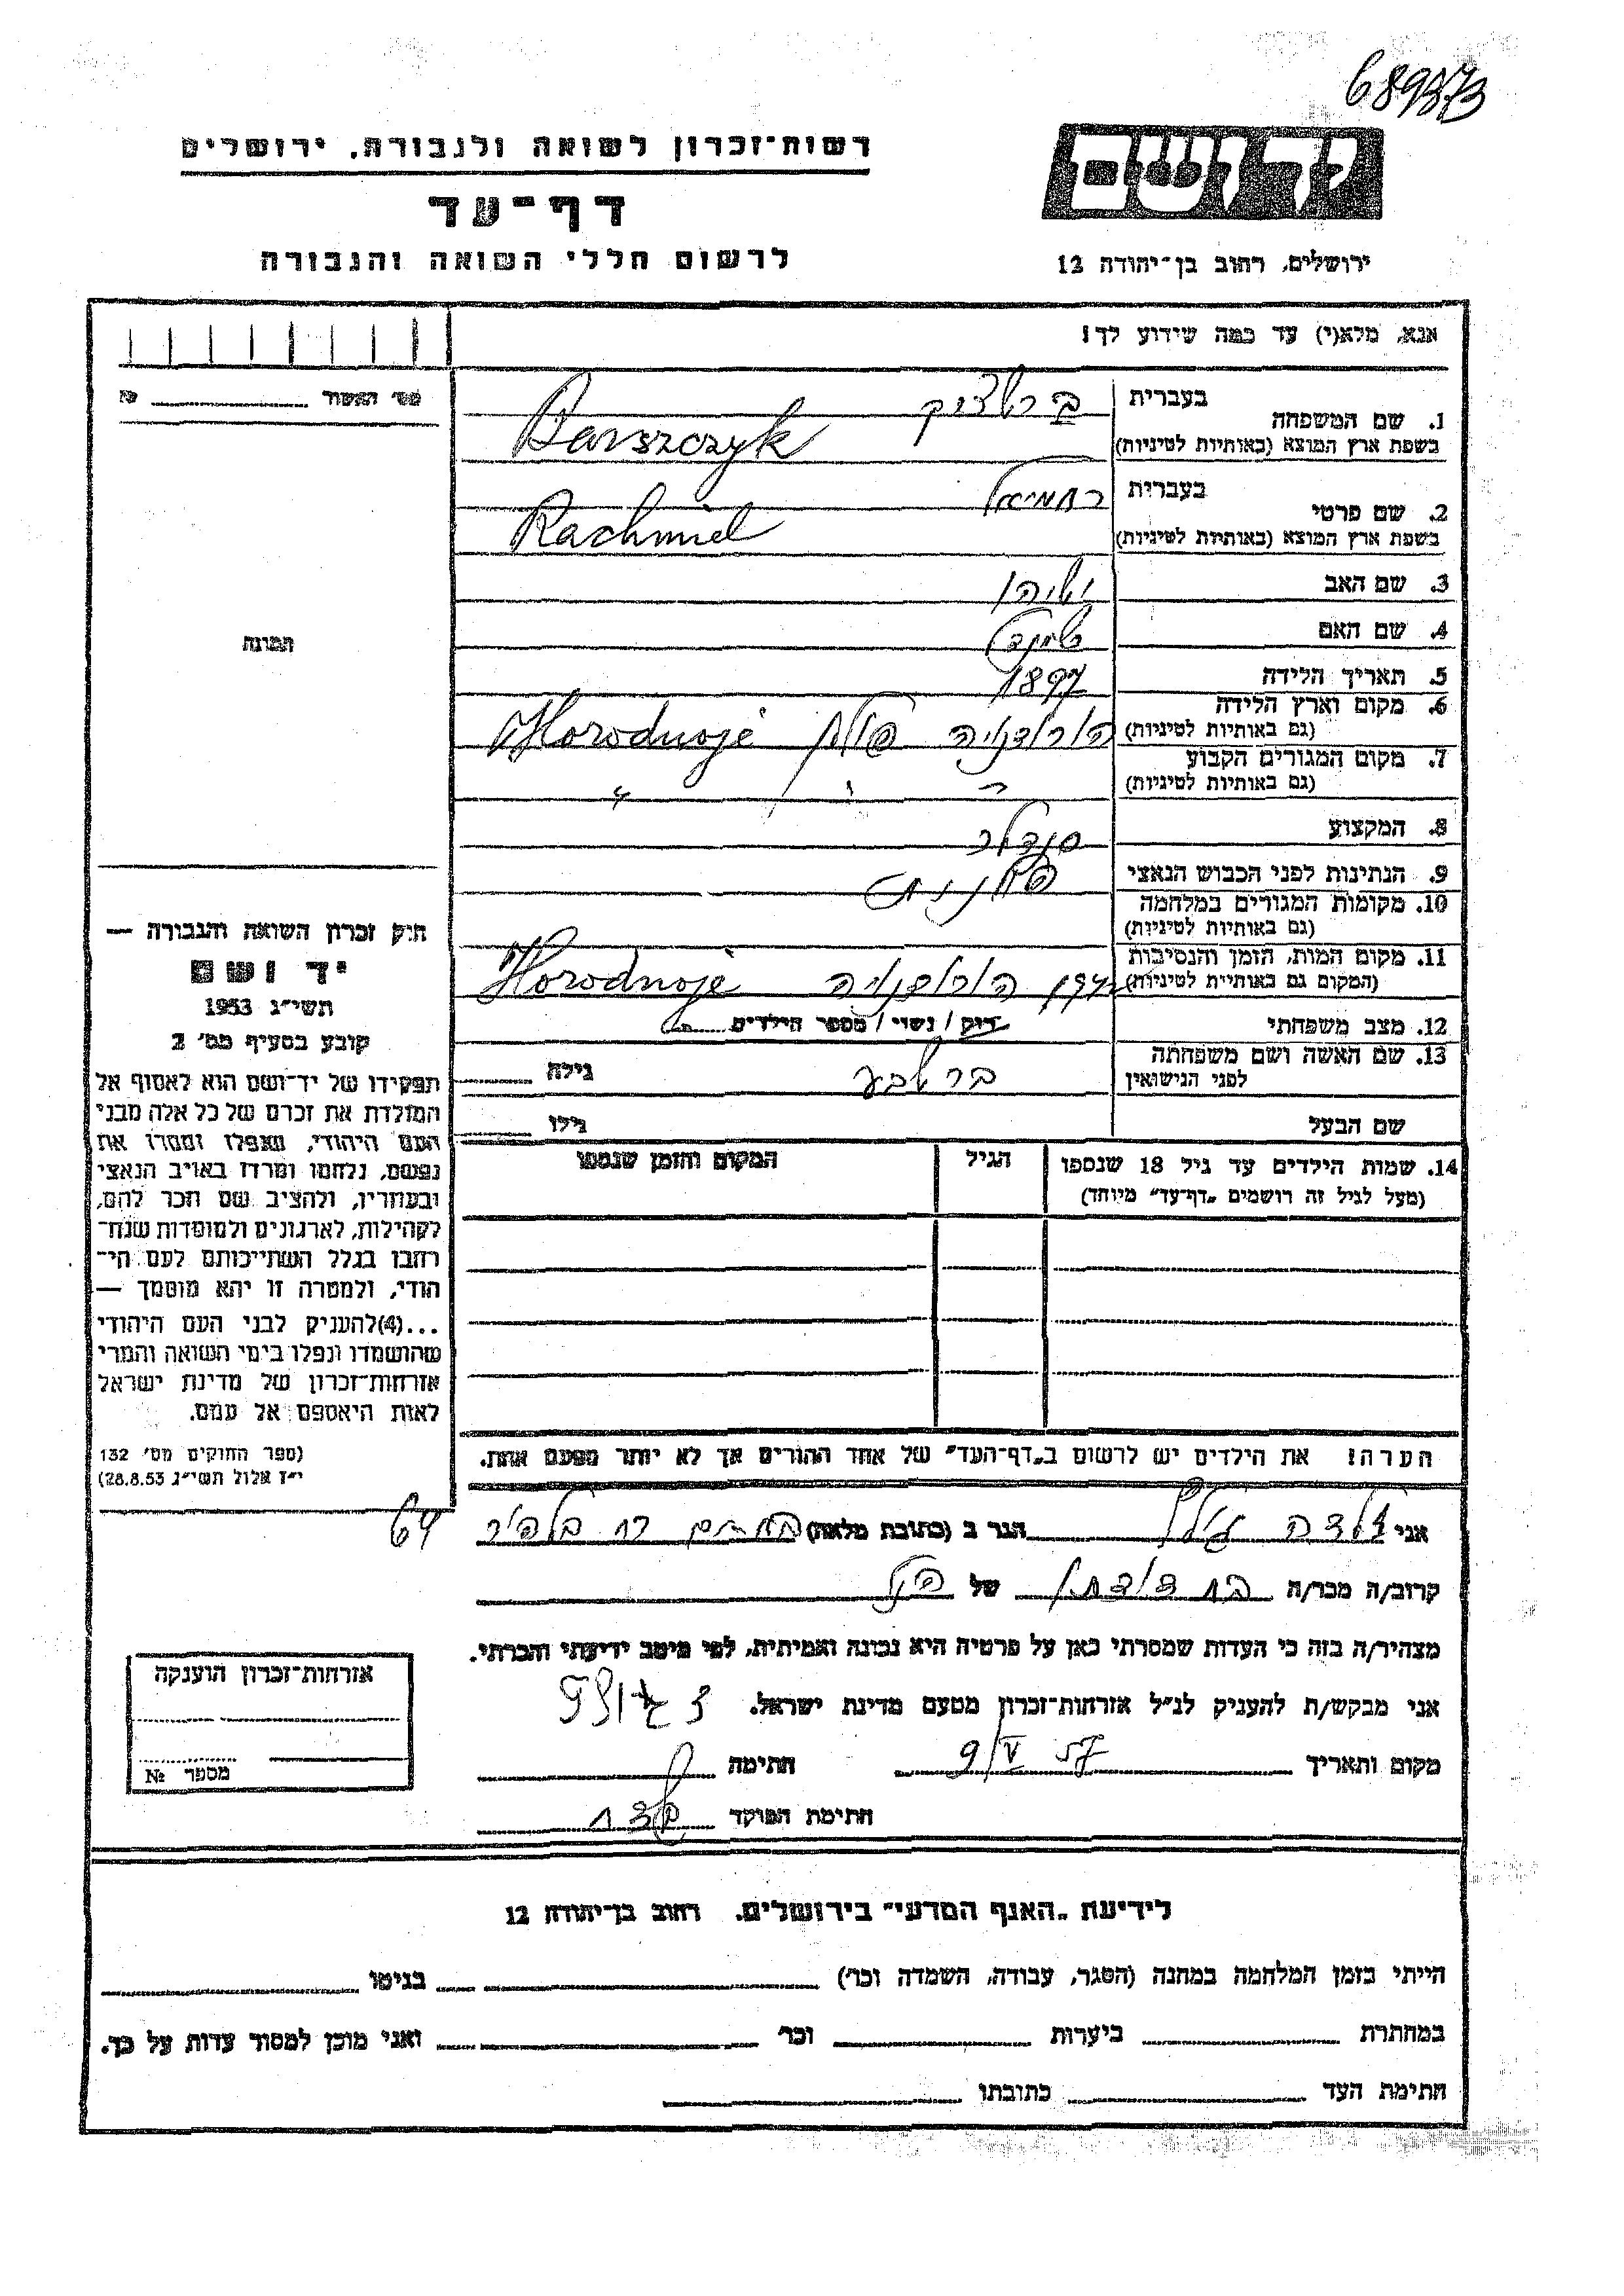 689373
רשות־זכרון לשואה ולגבורה, ירושלים
יד ושם
דף־עד
לרשום חללי השואה והגבורה
ירושלים, רחוב בן־יהודה 12
אנא, מלא(י) עד כמה שידוע לך!
מס׳ האשור №
1. שם המשפחה
בעברית ברשציק
בשפת ארץ המוצא (באותיות לטיניות) Barszczyk
2. שם פרטי
בעברית רחמיאל
בשפת ארץ המוצא (באותיות לטיניות) Rachmiel
3. שם האב ישיהו
4. שם האם
תמונה
5. תאריך הלידה 1897
6. מקום וארץ הלידה
(גם באותיות לטיניות) הורודנויה פולין Horodnoje
7. מקום המגורים הקבוע
(גם באותיות לטיניות) " " "
8. המקצוע סנדלר
9. הנתינות לפני הכבוש הנאצי פולנית
10. מקומות המגורים במלחמה
(גם באותיות לטיניות)
11. מקום המות, הזמן והנסיבות
(המקום גם באותיות לטיניות) הורודנויה Horodnoje
12. מצב משפחתי רווק / נשוי / מספר הילדים
13. שם האשה ושם משפחתה
לפני הנישואין בת שבע גילה
שם הבעל גילו
14. שמות הילדים עד גיל 18 שנספו הגיל המקום והזמן שנספו
(מעל לגיל זה רושמים „דף־עד" מיוחד)
הערה! את הילדים יש לרשום ב„דף־העד" של אחד ההורים אך לא יותר מפעם אחת.
חוק זכרון השואה והגבורה —
יד ושם
תשי״ג 1953
קובע בסעיף מס׳ 2
תפקידו של יד־ושם הוא לאסוף אל
המולדת את זכרם של כל אלה מבני
העם היהודי, שנפלו ומסרו את
נפשם, נלחמו ומרדו באויב הנאצי
ובעוזריו, ולהציב שם וזכר להם,
לקהילות, לארגונים ולמוסדות שנח־
רבו בגלל השתייכותם לעם הי־
הודי, ולמטרה זו יהא מוסמך —
...(4)להעניק לבני העם היהודי
שהושמדו ונפלו בימי השואה והמרי
אזרחות־זכרון של מדינת ישראל
לאות היאספם אל עמם.
(ספר החוקים מס׳ 132
י״ז אלול תשי״ג 28.8.53)
אני הגר ב (כתובת מלאה) 64
קרוב/ה מכר/ה בת דודתו של הנ"ל
מצהיר/ה בזה כי העדות שמסרתי כאן על פרטיה היא נכונה ואמיתית, לפי מיטב ידיעתי והכרתי.
אני מבקש/ת להעניק לנ״ל אזרחות־זכרון מטעם מדינת ישראל.
מקום ותאריך 9/V 57 חתימה
חתימת הפוקד
אזרחות־זכרון הוענקה
מספר №
לידיעת „האגף המדעי" בירושלים. רחוב בן־יהודה 12
הייתי בזמן המלחמה במחנה (הסגר, עבודה, השמדה וכו׳) בגיטו
במחתרת ביערות וכו׳ ואני מוכן למסור עדות על כך.
חתימת העד כתובתו